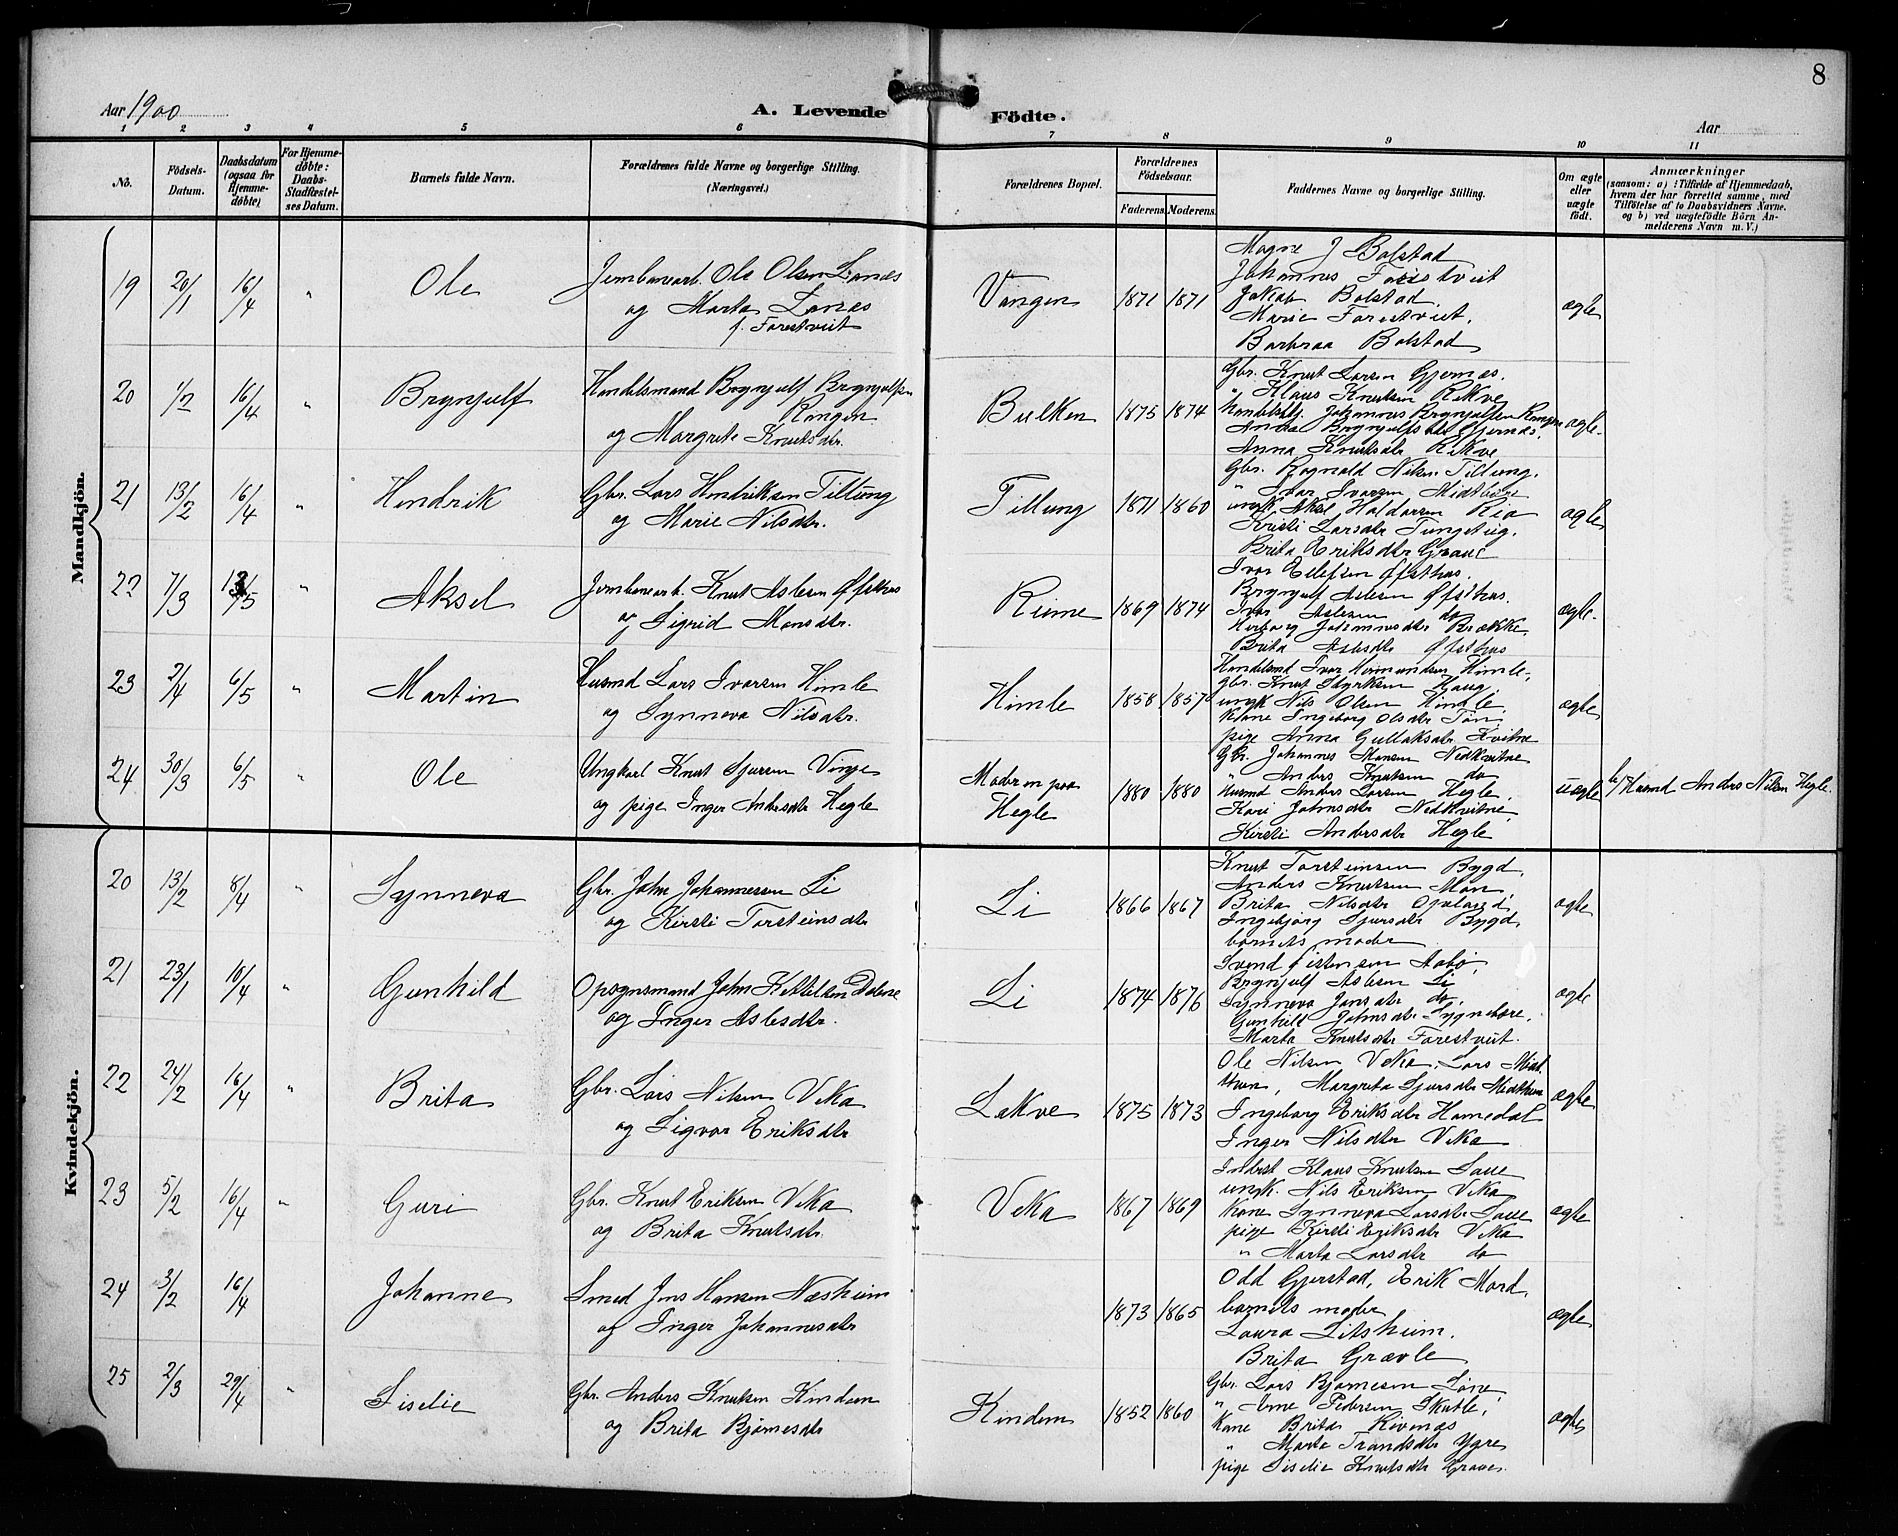 8
Aar 1900
A. Levende Födte.
Aar
1 2 3 4 5 6 7 8 9 10 11
No.
Födsels-Datum.
Daabsdatum (ogsaa for Hjemme-døbte)
For Hjemme-døbte: Daabs-Stadfæstel-ses Datum.
Barnets fulde Navn.
Forældrenes fulde Navne og borgerlige Stilling. (Næringsvei.)
Forældrenes Bopæl.
Forældrenes Födselsaar.
Faderens. Moderens.
Faddernes Navne og borgerlige Stilling.
Om ægte eller uægte födt.
Anmærkninger
(saasom: a) i Tilfælde af Hjemmedaab, hvem der har forrettet samme, med Tilföielse af to Daabsvidners Navne. og b) ved uægtefödte Börn An-melderens Navn m. V.)
Mandkjön.
19 20/1 16/4 " Ole
Jernbanearb. Ole Olsen Lønes
og Marta Lønes
f. Forestveit
Vangen 1871 1871
Magne J Bolstad
Johannes Forestveit
Jakob Bolstad.
Marie Forestveit.
Barbraa Bolstad
ægte
20 1/2 16/4 " Brynjulf
Handelsmand Brynjulf Brynjulfsen
Ringen
og Margrete Knutsdtr.
Bulken 1875 1874
Gbr. Knut Larsen Gjernes.
" Klaus Knutsen Rekve
Handelsbtj. Johannes Brynjulfsen Ringen
Anna Brynjulfsdtr Gjernes.
Anna Knutsdtr Rekve
ægte.
21 13/2 16/4 " Hendrik
Gbr. Lars Hendriksen Tillung
og Marie Nilsdtr.
Tillung 1871 1860
Gbr. Ragnald Nilsen Tillung.
" Ivar Ivarsen Midtbøre
ungk. Aksel Haldorsen Rio
Kristi Larsdtr Tungeteig.
Brita Eriksdtr Grove
ægte
22 7/3 /5 " Aksel
Jernbanearb. Knut Aslesen Øfsthus
og Sigrid Monsdtr.
Rieme 1869 1874
Ivar Ellefsen Øfsthus.
Brynjulf Aslesen Øfsthus.
Ivar Aslesen do
Herborg Johannesdtr Brekke
Brita Aslesdtr Øfsthus
ægte.
23 2/4 6/5 " Martin
Husmd Lars Ivarsen Himle
og Synneva Nilsdtr.
Himle 1858 1857
Handelsmd Ivar Hermundsen Himle.
gbr. Knut Styrksen Haug.
ungk Nils Olsen Himle.
Kone Ingeborg Olsdtr Tøn
pige Anna Gullaksdtr Kvitne
ægte
24 30/3 6/5 " Ole
Ungkarl Knut Sjursen Vinje
og pige Inger Andersdtr Hegle
Moderen paa
Hegle 1880 1880
Gbr. Johannes Monsen Nedkvitne
" Anders Knutsen do
Husmd Anders Larsen Hegle.
Kari Johnsdtr Nedkvitne
Kirsti Andersdtr Hegle
uægte
b/ Husmd Anders Nilsen Hegle.
Kvindekjön.
20 13/2 8/4 " Synneva
Gbr. John Johannessen Li
og Kirsti Torsteinsdtr
Li 1866 1867
Knut Torsteinsen Bygd.
Anders Knutsen Møn
Brita Nilsdtr Opeland
Ingebjørg Sjursdtr Bygd.
barnets moder
ægte
21 23/1 10/4 " Gunhild
Opsynsmand John Kittelsen Dalene
og Inger Aslesdtr.
Li 1874 1876
Svend Østensen Aabø.
Brynjulf Aslesen Li
Synneva Jonsdtr do.
Gunhild Johnsdtr
Marta Knutsdtr Forestveit.
ægte
22 24/2 16/4 " Brita
Gbr. Lars Nilsen Veka
og Sigvor Eriksdtr
Lekve 1875 1873
Ole Nilsen Veka. Lars Midt-
thun, Margreta Sjursdtr Midthun
Ingeborg Eriksdtr Hamedal
Inger Nilsdtr Veka
ægte
23 5/2 16/4 " Guri
Gbr. Knut Eriksen Veka
og Brita Knutsdtr.
Veka 1867 1869
Inderst Klaus Knutsen Saue
ungk. Nils Eriksen Veka
Kone Synneva Larsdtr Saue
pige Kirsti Eriksdtr Veka
" Marta Larsdtr do
ægte
24 3/2 16/4 Johanne
Smed Jens Hansen Næsheim
og Inger Johannesdtr
1873 1865
Odd Gjerstad, Erik Mord.
barnets moder
Laura Litsheim.
Brita Grævle
ægte
25 2/3 29/4 " Siselie
Gbr. Anders Knutsen Kindem
og Brita Bjørnesdtr
Kindem 1852 1860
Gbr. Lars Bjørnesen Løne
" Arne Pedersen Skutle,
Kone Brita Rivenes
" Marta Trondsdtr Ygre
pige Siselie Knutsdtr Grove
ægte